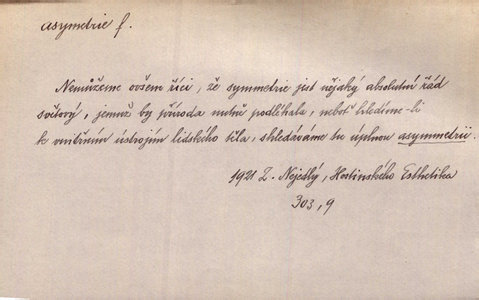 asymetrie f.
Nemůžeme ovšem říci, že symmetrie jest nějaký absolutní řád
světový, jemuž by příroda nutně podléhala, neboť hledíme-li
k vnitřním ústrojím lidského těla, shledáváme tu úplnou asymmetrii.
1921 Z. Nejedlý, Hostinského Esthetika
303, 9